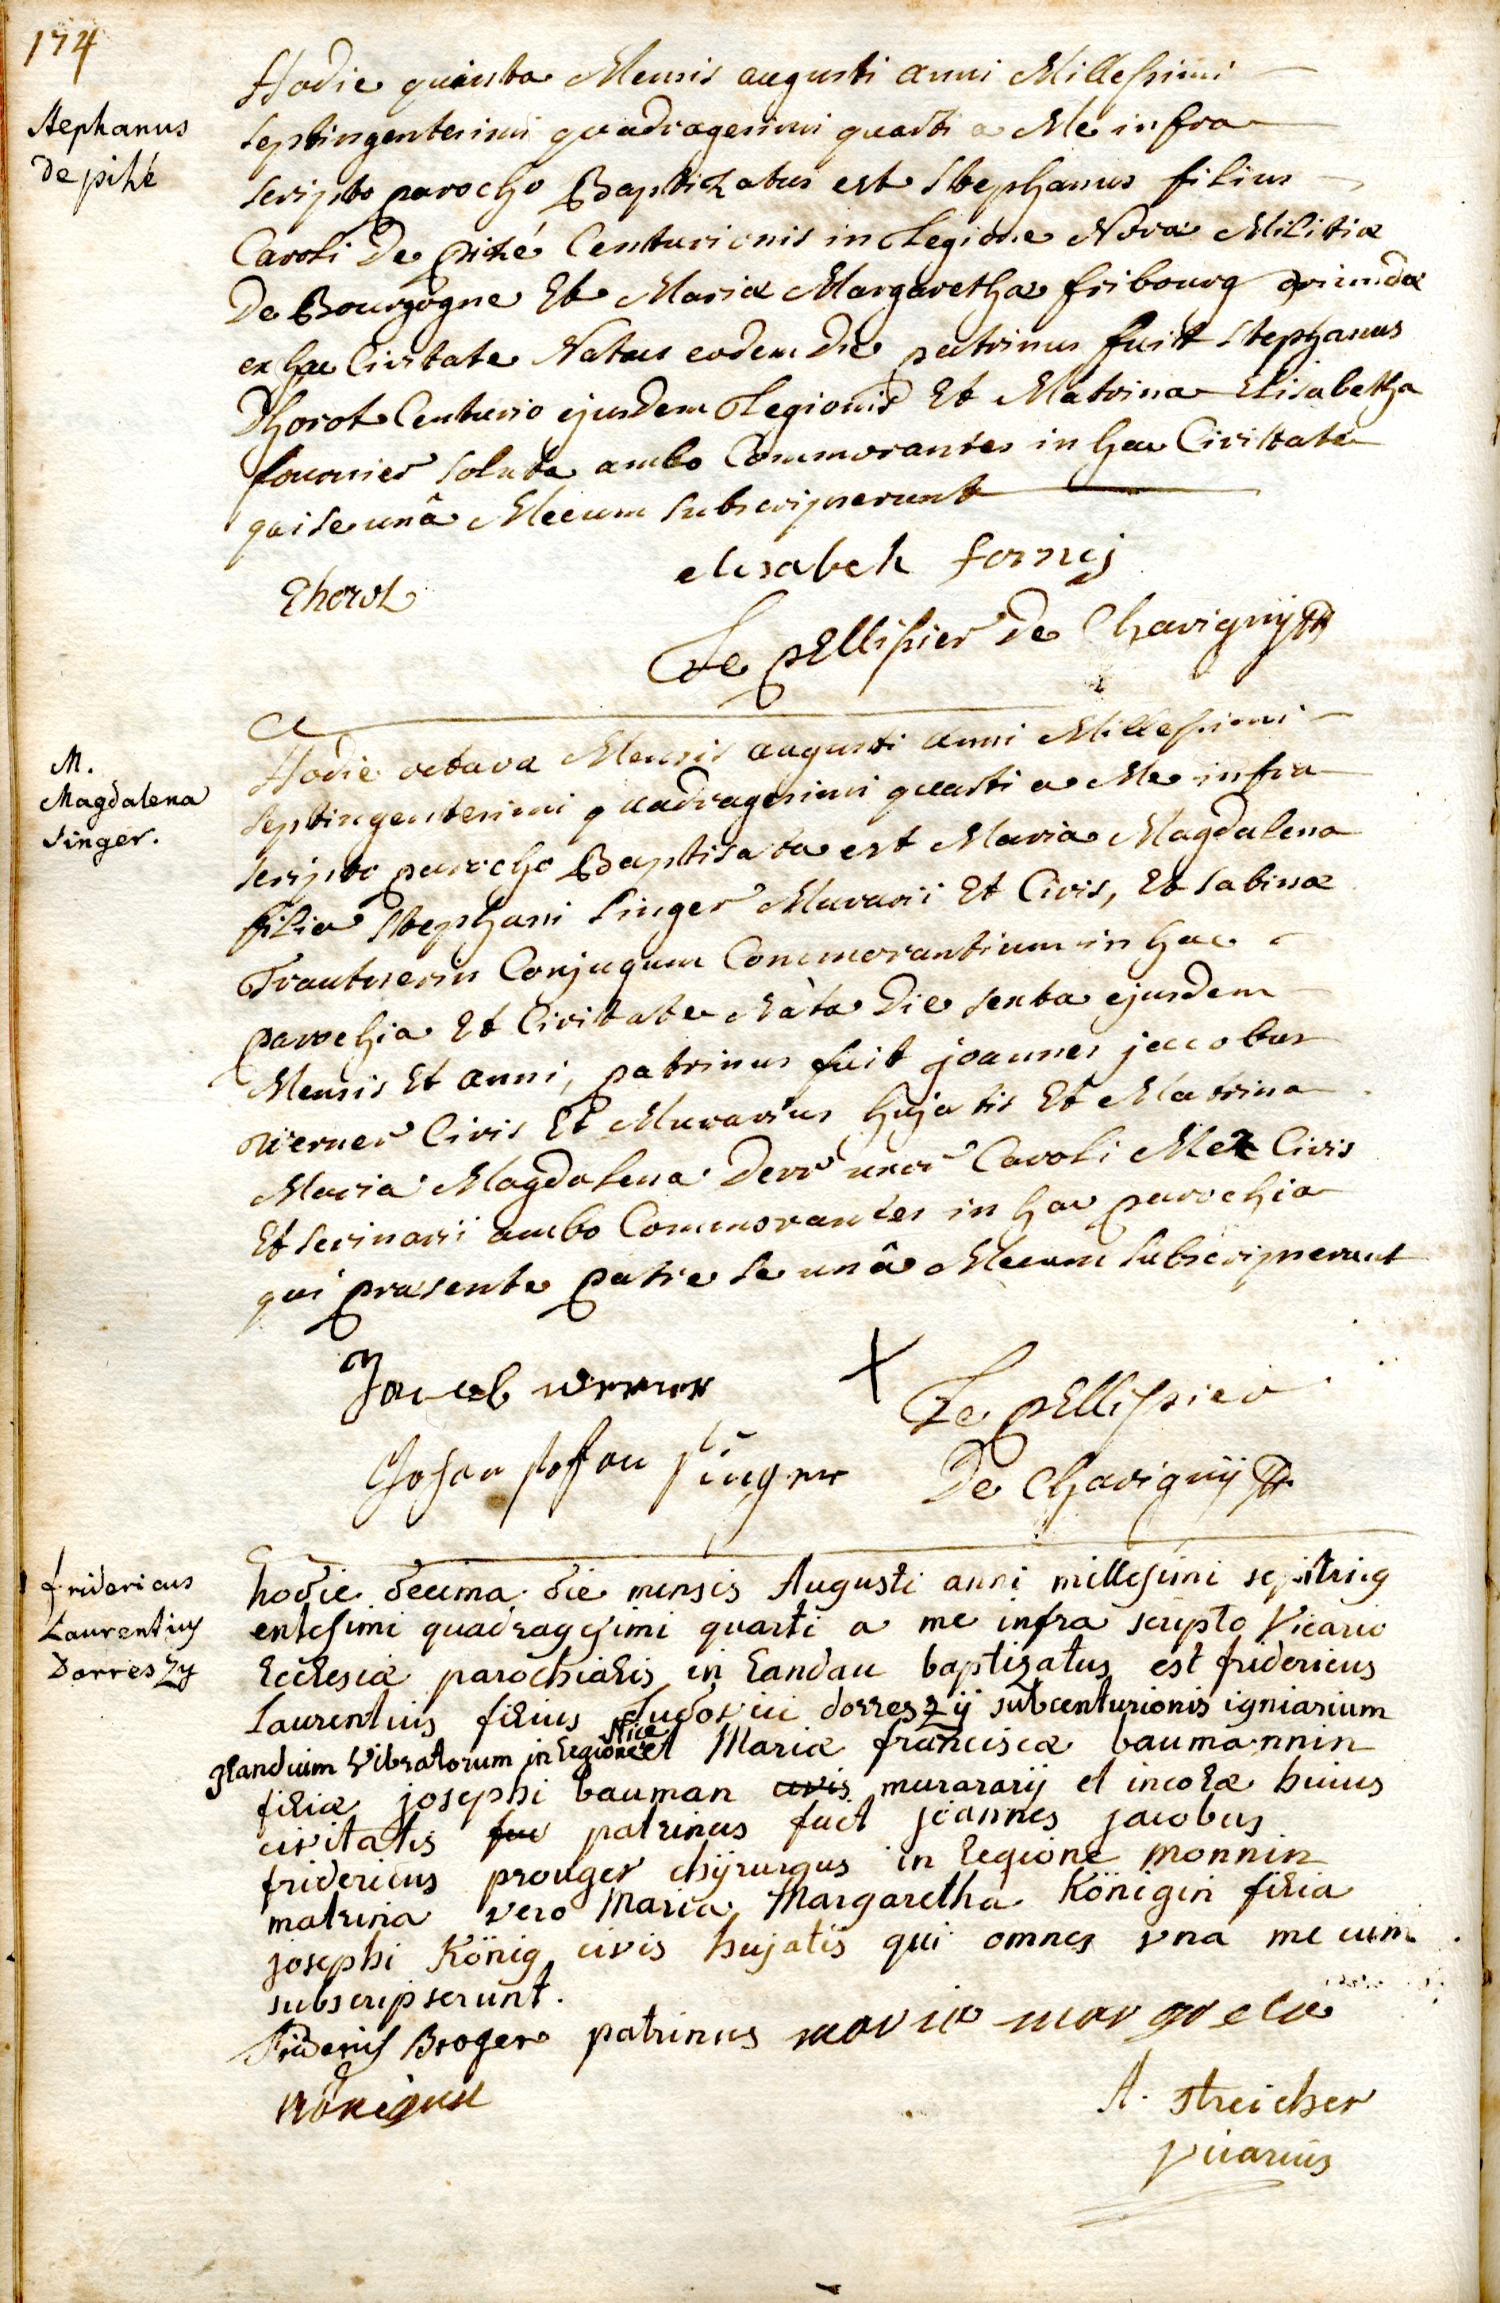 174
Stephanus
De pihé
Hodie quinta Mensis augusti anni Millesimi
septingentesimi quadragesimi quarti a Me infra
scripto parocho Baptizatus est Stephanus filius
Caroli De pihé Centurionis in Legione Nova Militiæ
De Bourgogne Et Mariæ Margarethæ fribourg oriundæ
ex hac Civitate Natus eodem Die patrinus fuit Stephanus
Thorot Centurio ejusdem Legionis Et Matrina Elisabetha
fournier soluta ambo Commorantes in hac Civitate
qui se unâ Mecum subscripserunt
elisabeh fornij
Thorot
Le pellissier De Chavignÿ
M.
Magdalena
Singer.
Hodie octava Mensis augusti anni Millesimi
septingentesimi quadragesimi quarti a Me infra
scripto parocho Baptisata est Maria Magdalena
filia Stephani Singer Murarii Et Civis, Et Sabinæ
Trautnerin Conjugum Commorantium in hac
parochia Et Civitate Nata Die sexta ejusdem
Mensis Et anni, patrinus fuit joannes jacobus
Werner Civis Et Murarius hujatis Et Matrina
Maria Magdalena Derr uxor Caroli Mez Civis
Et scrinarii ambo Commorantes in hac parochia
qui præsente patre se unâ Mecum subscripserunt
Jacob werner
X
Le pellissier
De Chavignÿ
Johan stefan singer
fridericus
Laurentius
Dorreszy
hodie decima die mensis Augusti anni millesimi septing
entesimi quadragesimi quarti a me infra scripto Vicario
Ecclesiæ parochialis in Landau baptizatus est fridericus
Laurentius filius Ludovici dorreszÿ subcenturionis igniarium
glandium Vibratorum in legione Nice et Mariæ franciscæ baumannin
filiæ josephi bauman civis murararij et incolæ huius
civitatis fuc patrinus fuit joannes jacobus
fridericus prouger chÿrurgus in legione monnin
matrina vero Maria Margaretha Königin filia
josephi König civis hujatis qui omnes vna me cum
subscripserunt.
friderich Broger patrinus maria margreta
königin
A. streicher
vicarius